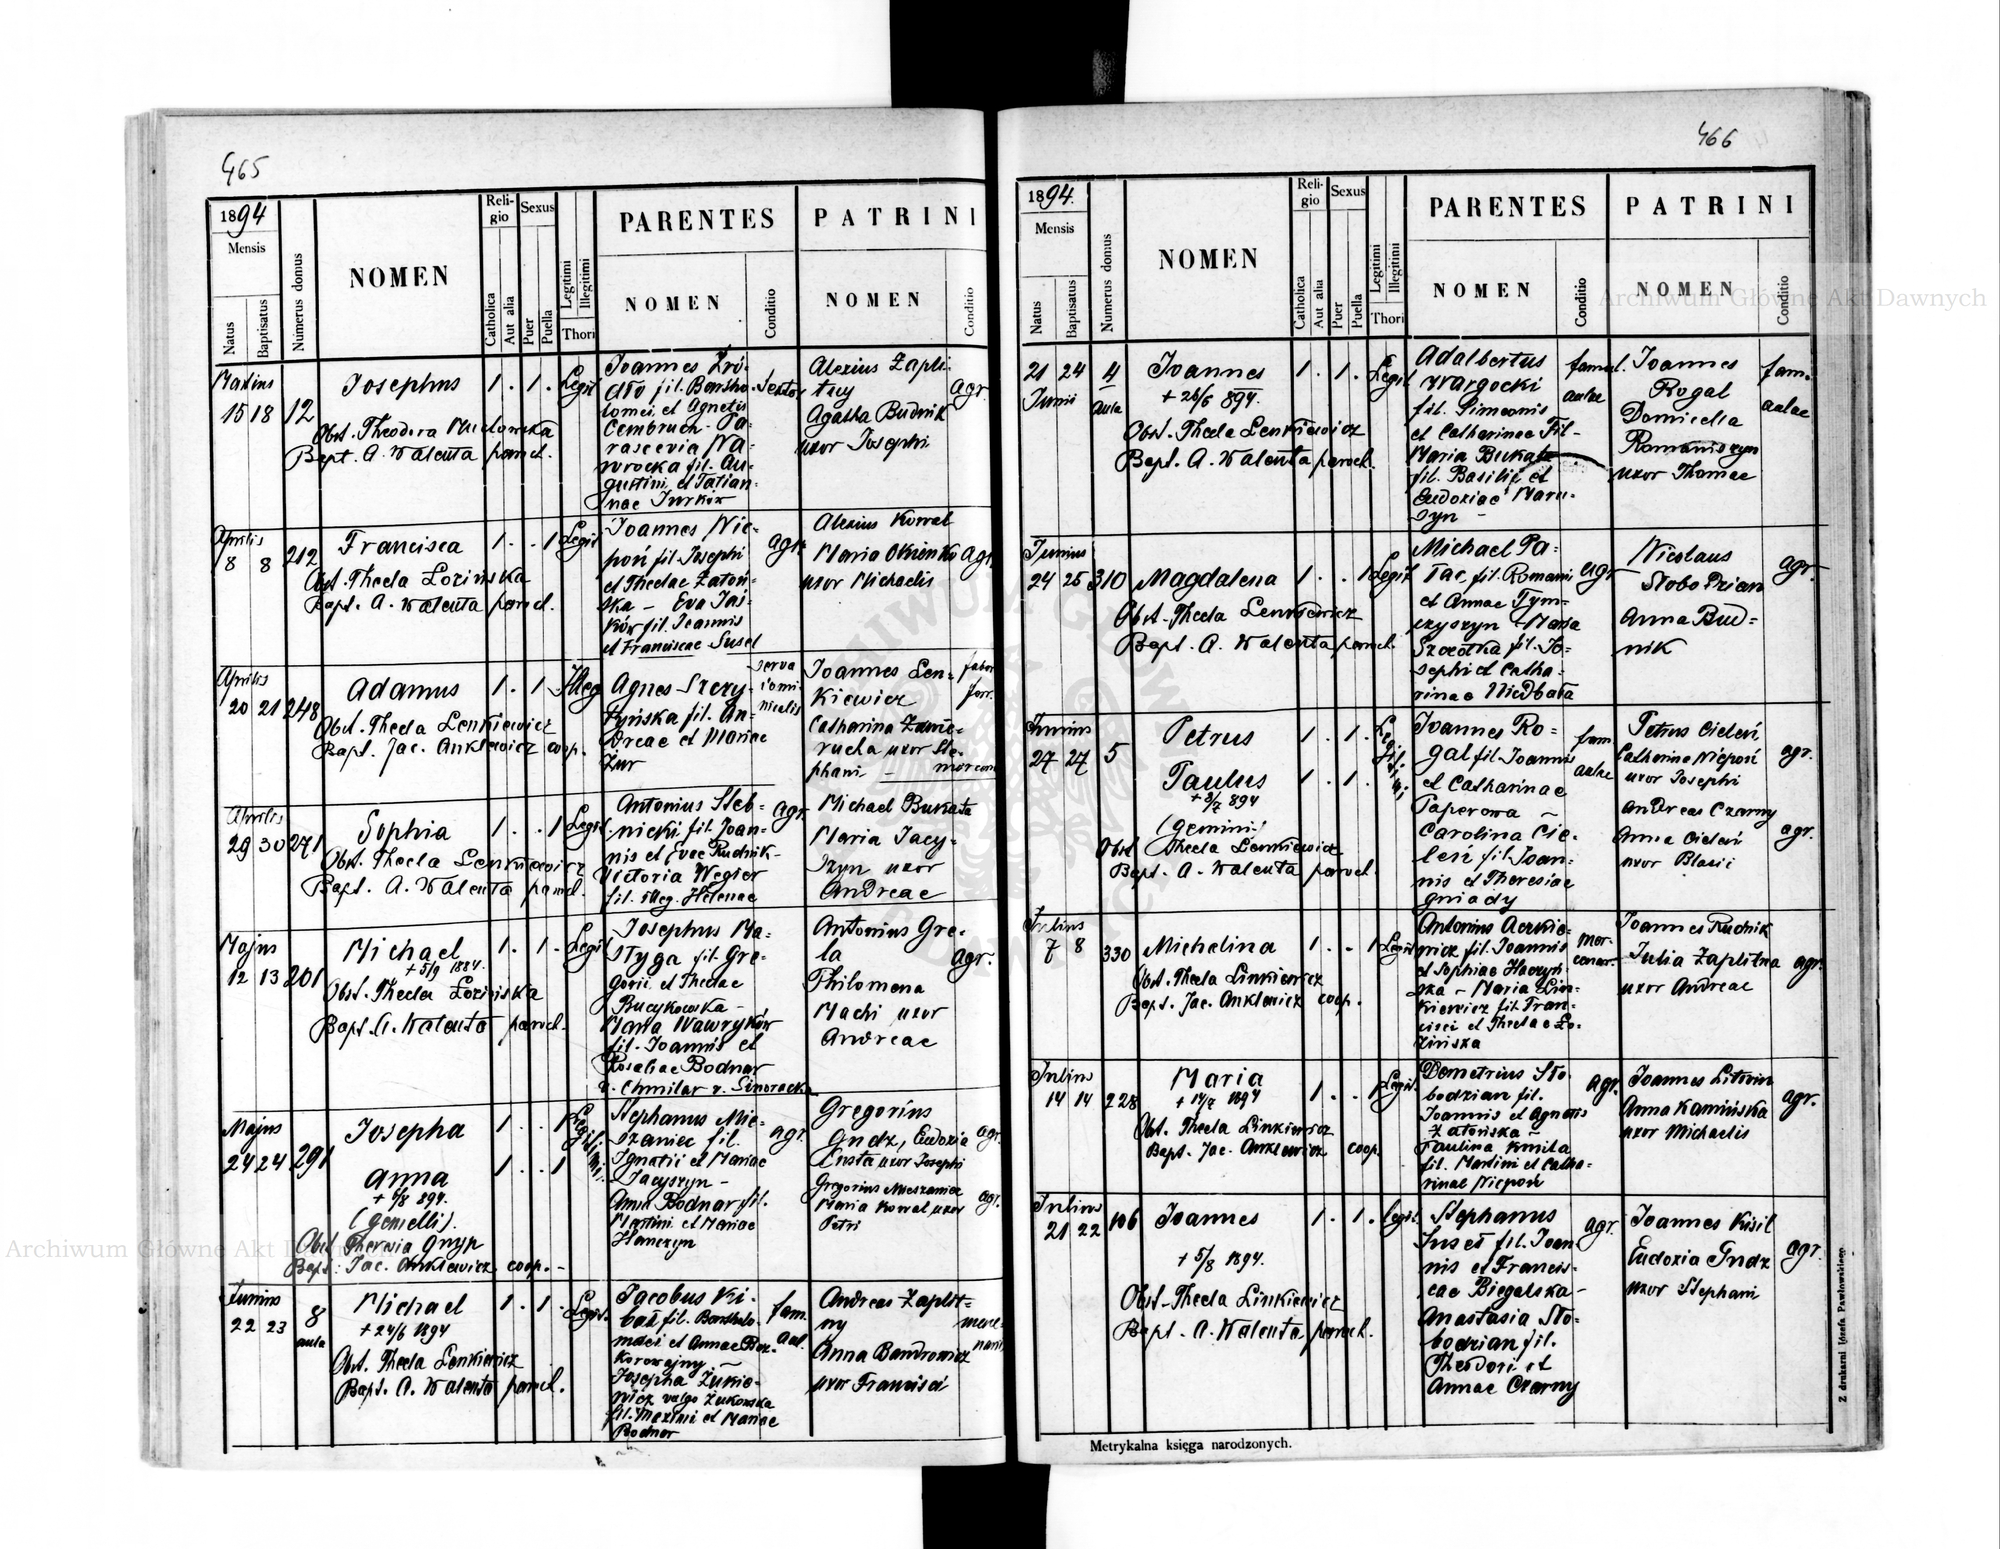 465
1894
Mensis
Natus
Baptisatus
Numerus domus
NOMEN
Religio
Catholica
Aut alia
Sexus
Puer
Puella
Legitimi
Illegitimi
Thori
PARENTES
NOMEN
Conditio
PATRINI
NOMEN
Conditio
Martius
15 18 12
Josephus
1 . 1 . Legit
Obst. Theodora
Bapt. A. Walenta paroch.
Joannes Źró-
dło fil. Bartho-
lomei et Agnetis
Cembruch - Pa-
rascevia Na-
wrocka fil. Au-
gustini et Tatian-
nae Jurków
Alexius Zapli-
tny
Agatha Budnik
uxor Josephi
agr.
Aprilis
8 8 212
Francisca
1 . . 1 Legit
Obst. Thecla Lozinska
Bapt. A. Walenta paroch.
Joannes Nie-
poń fil. Josephi
et Theclae Zatoń-
ska - Eva Jaś-
ków fil. Joannis
et Franciscae Suseł
agr.
Alexius Kowal
Maria Okienko
uxor Michaelis
agr.
Aprilis
20 21 248
Adamus
1 . 1 . Illeg
Obst. Thecla Lenkiewicz
Bapt. Jac. Anklewicz coop.
Agnes Szczy-
fil. An-
dreae et Mariae
Żur
serva
Joannes Len-
kiewicz
Catharina
rucha uxor Ste-
phani -
faber
ferr.
Aprilis
29 30 271
Sophia
1 . . 1 Legit.
Obst. Thecla Lenkiewicz
Bapt. A. Walenta paroch.
Antonius Steb-
nicki fil. Joan-
nis et Evae Rudnik -
Victoria Węgier
fil. illeg. Helenae
agr.
Michael Bukata
Maria Jacy-
szyn uxor
Andreae
Majus
12 13 201
Michael
+ 5/9 1884.
1 . 1 . Legit
Obst. Thecla Lozinska
Bapt. A. Walenta paroch.
Josephus Ma-
styga fil. Gre-
gorii et Theclae
Bucykowska -
Maria Wawryków
fil. Joannis et
Rosaliae Bodnar
v. Chmilar v. Sinoracka
Antonius Gre-
la
Philomena
Machi uxor
Andreae
agr.
Majus
24 24 291
Josepha
1 . . 1
Anna
+ 6/8 894.
1 . . 1
Legitimi
(gemelli).
Obst. Theresia Gnyp
Bapt. Jac. Anklewicz coop. -
Stephanus Mie-
szaniec fil.
Ignatii et Mariae
Jacyszyn -
Anna Bodnar fil.
Martini et Mariae
Hanczyn
agr.
Gregorius
Gudz, Eudoxia
uxor Josephi
Gregorius Mieszaniec
Maria Kowal uxor
Petri
agr.
agr.
Junius
22 23 8
aula
Michael
+ 24/6 1894
1 . 1 . Legit.
Obst. Thecla Lenkiewicz
Bapt. A. Walenta paroch.
Jacobus Ki-
fil. Bartholo-
maei et Annae Boz-
korowajny -
Josepha Żukie-
wicz vulgo Żukowska
fil. Maximi et Mariae
Bodnar
fam.
aul.
Andreas Zaplit-
ny
Anna Bandrowicz
uxor Francisci
466
1894.
Mensis
Natus
Baptisatus
Numerus domus
NOMEN
Religio
Catholica
Aut alia
Sexus
Puer
Puella
Legitimi
Illegitimi
Thori
PARENTES
NOMEN
Conditio
PATRINI
NOMEN
Conditio
21 24 4
Junii aula
Joannes
+ 26/6 894.
1 . 1 . Legit.
Obst. Thecla Lenkiewicz
Bapt. A. Walenta paroch.
Adalbertus
Wargocki
fil. Simeonis
et Catharinae Fil -
Maria Bukata
fil. Basilii et
Eudoxiae Maru-
szyn -
famul.
aulae
Joannes
Rogal
Domicella
Romaniszyn
uxor Thomae
fam.
aulae
Junius
24 25 310
Magdalena
1 . . 1 Legit
Obst. Thecla Lenkiewicz
Bapt. A. Walenta paroch.
Michael Pa-
fil. Romani
et Annae Tym-
czyszyn - Maria
Szczotka fil. Jo-
sephi et Catha-
rinae Niedbała
agr.
Nicolaus
Słobodzian
Anna Bud-
nik
agr.
Junius
27 27 5
Petrus
1 . 1 .
Paulus
+ 3/7 894
1 . 1 .
Legitimi
(gemini)
Obst. Thecla Lenkiewicz
Bapt. A. Walenta paroch.
Joannes Ro-
gal fil. Joannis
et Catharinae
Paperowa -
Carolina Cie-
leń fil. Joan-
nis et Theresiae
Gniady
fam.
aulae
Petrus Cieleń
Catharina Niepoń
uxor Josephi
Andreas Czarny
Anna Cieleń
uxor Blasii
agr.
agr.
Julius
7 8 330
Michelina
1 . . 1 Legit
Obst. Thecla Linkiewicz
Bapt. Jac. Anklewicz coop.
Antonius
fil. Joannis
et Sophiae
- Maria Lin-
kiewicz fil. Fran-
cisci et Theclae Ło-
zińska
mer-
cenar.
Joannes Rudnik
Julia Zaplitna
uxor Andreae
agr.
Julius
14 14 228
Maria
+ 14/7 1894
1 . . 1 Legit.
Obst. Thecla Linkiewicz
Bapt. Jac. Anklewicz coop.
Demetrius Sło-
bodzian fil.
Joannis et Agnetis
Zatońska -
Paulina Kmita
fil. Martini et Catha-
rinae Niepoń
agr.
Joannes Litwin
Anna Kamińska
uxor Michaelis
agr.
Julius
21 22 106
Joannes
+ 5/8 1894.
1 . 1 . legit.
Obst. Thecla Linkiewicz
Bapt. A. Walenta paroch.
Stephanus
Suseł fil. Joan-
nis et Francis-
cae Biegalska -
Anastasia Sło-
bodzian fil.
Theodori et
Annae Czarny
agr.
Joannes Kisil
Eudoxia Gudz
uxor Stephani
agr.
Metrykalna księga narodzonych.
Z drukarni Józefa Pawłowskiego
Archiwum Główne Akt Dawnych
Archiwum Główne Akt Dawnych